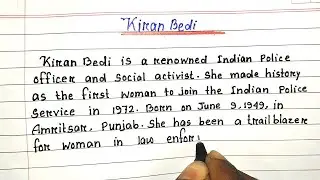 Kiran Bedi
Kiran Bedi is a renowned Indian Police
officer and social activist. She made history
as the first woman to join the Indian Police
Service in 1972. Born on June 9,1949, in
Amritsar, Punjab. She has been a trailblazer
for woman in law enfor